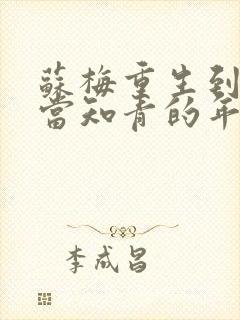 蘇梅重生到
當知青的年
李成昌